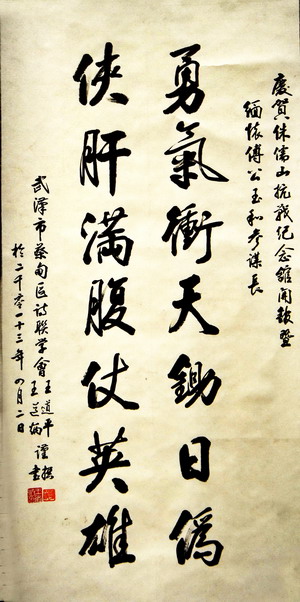 慶賀侏儒山抗戰紀念館開館暨
緬懷傅公玉和參謀長
勇氣衝天鋤日偽
俠肝滿腹仗英雄
武漢市蔡甸區詩聯學會王道平 謹撰
王道炳 書
於二千零一十三年四月二日